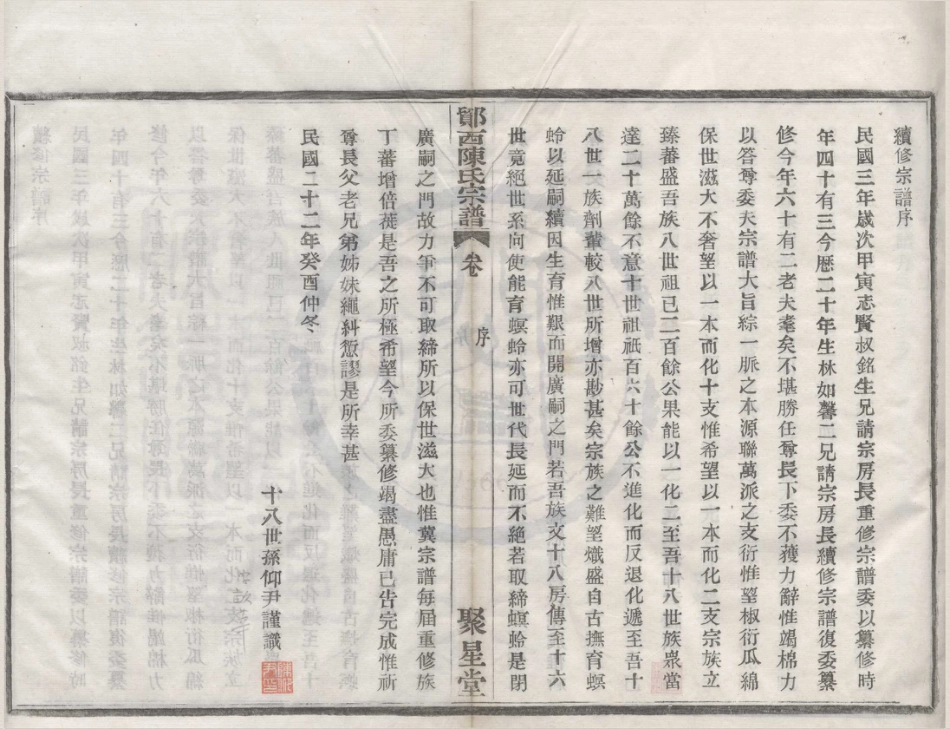 續修宗譜序
民國三年歲次甲寅志賢叔銘生兄請宗房長重修宗譜委以纂修時
年四十有三今歷二十年生林如馨二兄請宗房長續修宗譜復委纂
修今年六十有二老夫耄矣不堪勝任尊長下委不獲力辭惟竭棉力
以答尊委夫宗譜大旨綜一脈之本源聯萬派之支衍惟望椒衍瓜綿
保世滋大不奢望以一本而化十支惟希望以一本而化二支宗族立
臻蕃盛吾族八世祖已二百餘公果能以一化二至吾十八世族衆當
達二十萬餘不意十世祖祇百六十餘公不進化而反退化遞至吾十
八世一族劑輩較八世所增亦尠甚矣宗族之難望熾盛自古撫育螟
蛉以延嗣續因生育惟艱而開廣嗣之門若吾族文十八房傳至十六
世竟絕世系向使能育螟蛉亦可世代長延而不絕若取締螟蛉是閉
鄮西陳氏宗譜
卷
序
聚星堂
廣嗣之門故力爭不可取締所以保世滋大也惟冀宗譜每屆重修族
丁蕃增倍蓰是吾之所極希望今所委纂修竭盡愚庸已告完成惟祈
尊長父老兄弟姊妹繩糾愆謬是所幸甚
民國二十二年癸酉仲冬
十八世孫仰尹謹識